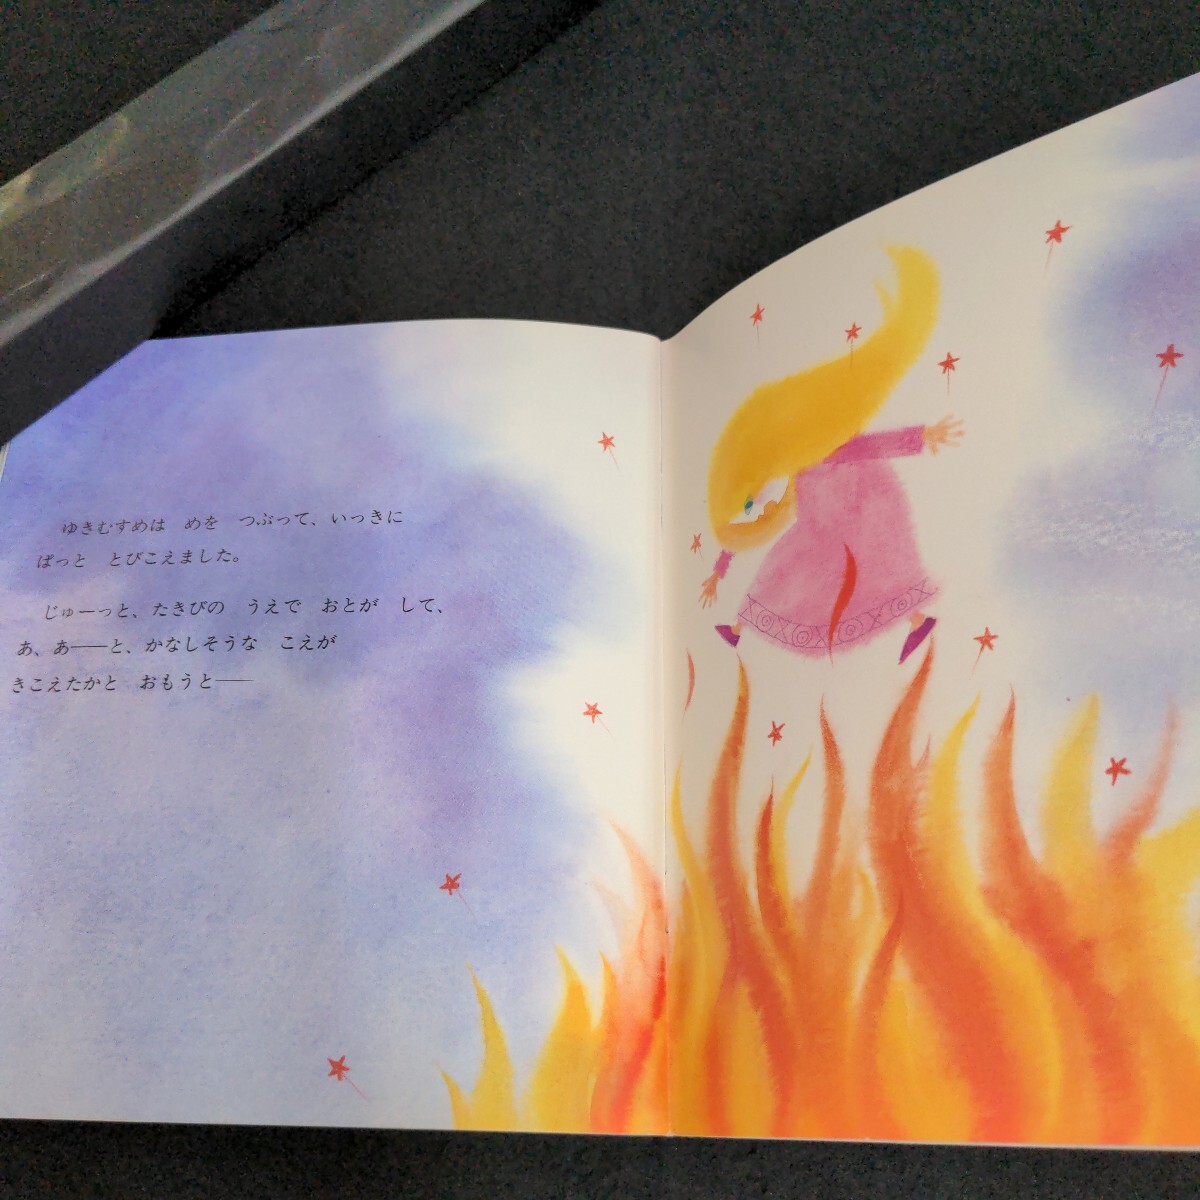 ゆきむすめは　めを　つぶって、いっきに
ぱっと　とびこえました。
じゅーっと、たきびの　うえで　おとが　して、
あ、あ――と、かなしそうな　こえが
きこえたかと　おもうと――